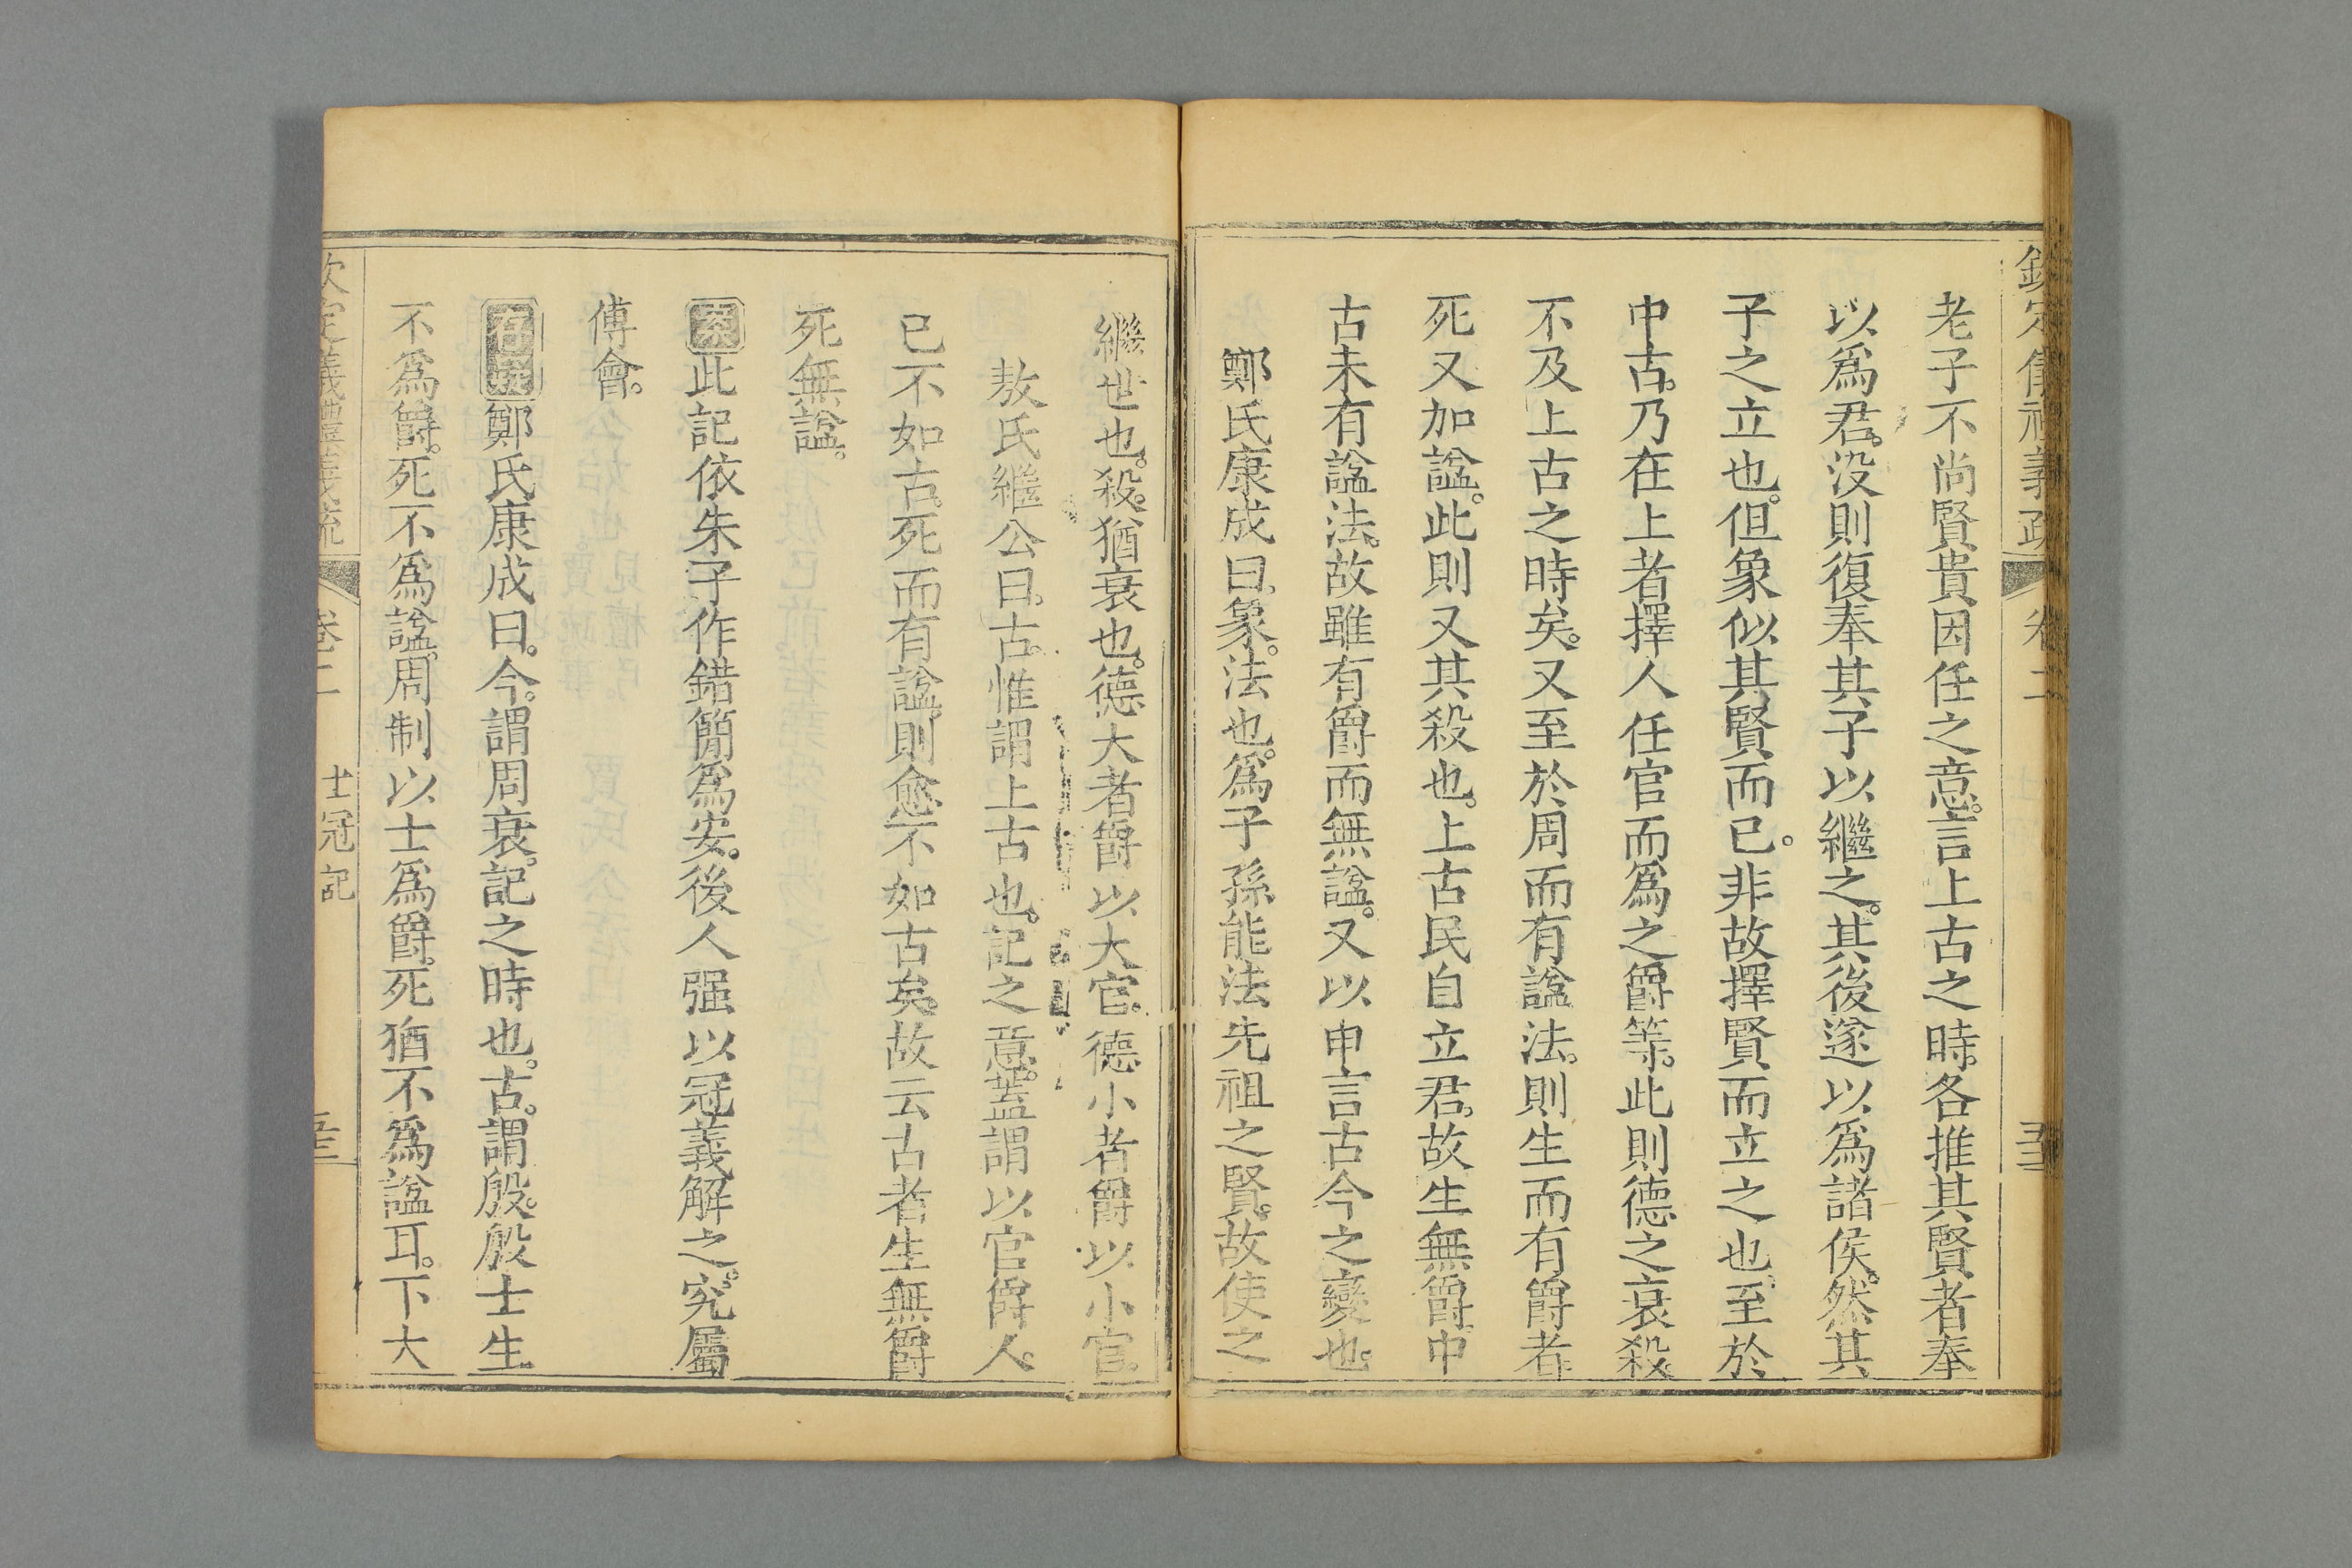 欽定儀禮義疏 卷二
老子不尚賢貴因任之意。言上古之時。各推其賢者奉
以爲君。没則復奉其子以繼之。其後遂以爲諸侯。然其
子之立也。但象似其賢而已。非故擇賢而立之也。至於
中古。乃在上者擇人任官而爲之爵等。此則德之衰殺。
不及上古之時矣。又至於周而有諡法。則生而有爵者。
死又加諡。此則又其殺也。上古民自立君。故生無爵中
古未有諡法。故雖有爵而無諡。又以申言古今之變也。
鄭氏康成曰。象。法也。爲子孫能法先祖之賢。故使之
繼世也。殺。猶衰也。德大者爵以大官。德小者爵以小官。
敖氏繼公曰。古。惟謂上古也。記之意。蓋謂以官爵人。
已不如古。死而有諡。則愈不如古矣。故云古者生無爵
死無諡。
案此記依朱子作錯簡爲安。後人强以冠義解之。究屬
傅會。
存疑鄭氏康成曰。今。謂周衰。記之時也。古。謂殷。殷士生
不爲爵。死不爲諡。周制以士爲爵。死猶不爲諡耳。下大
欽定儀禮義疏 卷二 士冠記